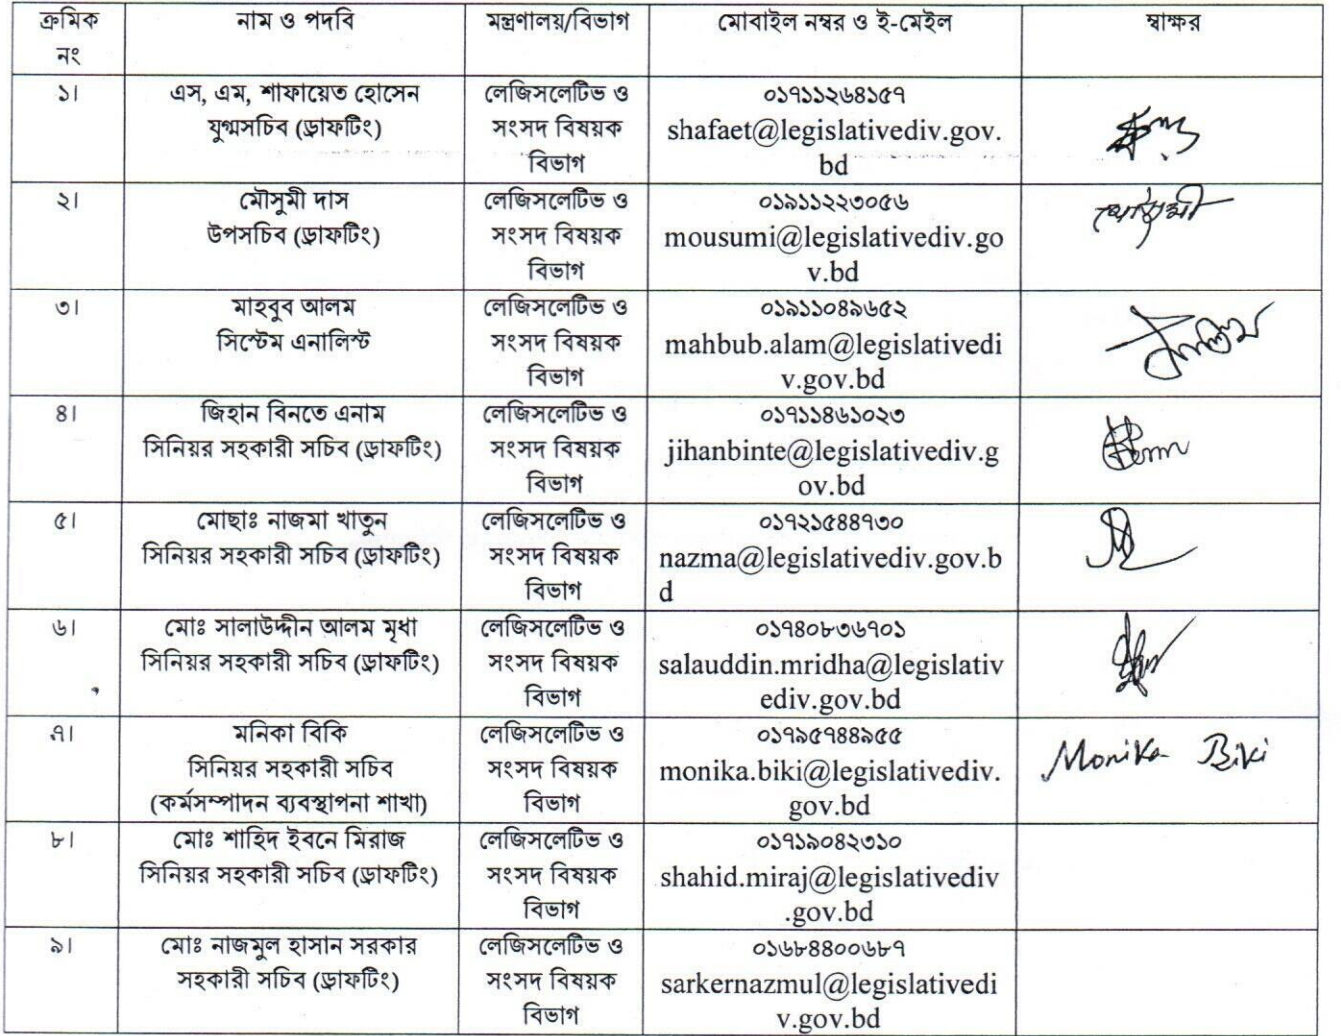 ক্রমিক নং
নাম ও পদবি
মন্ত্রণালয়/বিভাগ
মোবাইল নম্বর ও ই-মেইল
স্বাক্ষর
১।
এস, এম, শাফায়েত হোসেন
যুগ্মসচিব (ড্রাফটিং)
লেজিসলেটিভ ও
সংসদ বিষয়ক
বিভাগ
০১৭১১২৬৪১৫৭
shafaet@legislativediv.gov.
bd
২।
মৌসুমী দাস
উপসচিব (ড্রাফটিং)
লেজিসলেটিভ ও
সংসদ বিষয়ক
বিভাগ
০১৯১১২২৩০৫৬
mousumi@legislativediv.go
v.bd
৩।
মাহবুব আলম
সিস্টেম এনালিস্ট
লেজিসলেটিভ ও
সংসদ বিষয়ক
বিভাগ
০১৯১১০৪৯৬৫২
mahbub.alam@legislativedi
v.gov.bd
৪।
জিহান বিনতে এনাম
সিনিয়র সহকারী সচিব (ড্রাফটিং)
লেজিসলেটিভ ও
সংসদ বিষয়ক
বিভাগ
০১৭১১৪৬১০২৩
jihanbinte@legislativediv.g
ov.bd
৫।
মোছাঃ নাজমা খাতুন
সিনিয়র সহকারী সচিব (ড্রাফটিং)
লেজিসলেটিভ ও
সংসদ বিষয়ক
বিভাগ
০১৭২১৫৪৪৭৩০
nazma@legislativediv.gov.b
d
৬।
মোঃ সালাউদ্দীন আলম মৃধা
সিনিয়র সহকারী সচিব (ড্রাফটিং)
লেজিসলেটিভ ও
সংসদ বিষয়ক
বিভাগ
০১৭৪০৮৩৬৭০১
salauddin.mridha@legislativ
ediv.gov.bd
৭।
মনিকা বিকি
সিনিয়র সহকারী সচিব
(কর্মসম্পাদন ব্যবস্থাপনা শাখা)
লেজিসলেটিভ ও
সংসদ বিষয়ক
বিভাগ
০১৭৯৫৭৪৪৯৫৫
monika.biki@legislativediv.
gov.bd
Monika Biki
৮।
মোঃ শাহিদ ইবনে মিরাজ
সিনিয়র সহকারী সচিব (ড্রাফটিং)
লেজিসলেটিভ ও
সংসদ বিষয়ক
বিভাগ
০১৭১৯০৪২৩১০
shahid.miraj@legislativediv
.gov.bd
৯।
মোঃ নাজমুল হাসান সরকার
সহকারী সচিব (ড্রাফটিং)
লেজিসলেটিভ ও
সংসদ বিষয়ক
বিভাগ
০১৬৮৪৪০০৬৮৭
sarkernazmul@legislativedi
v.gov.bd